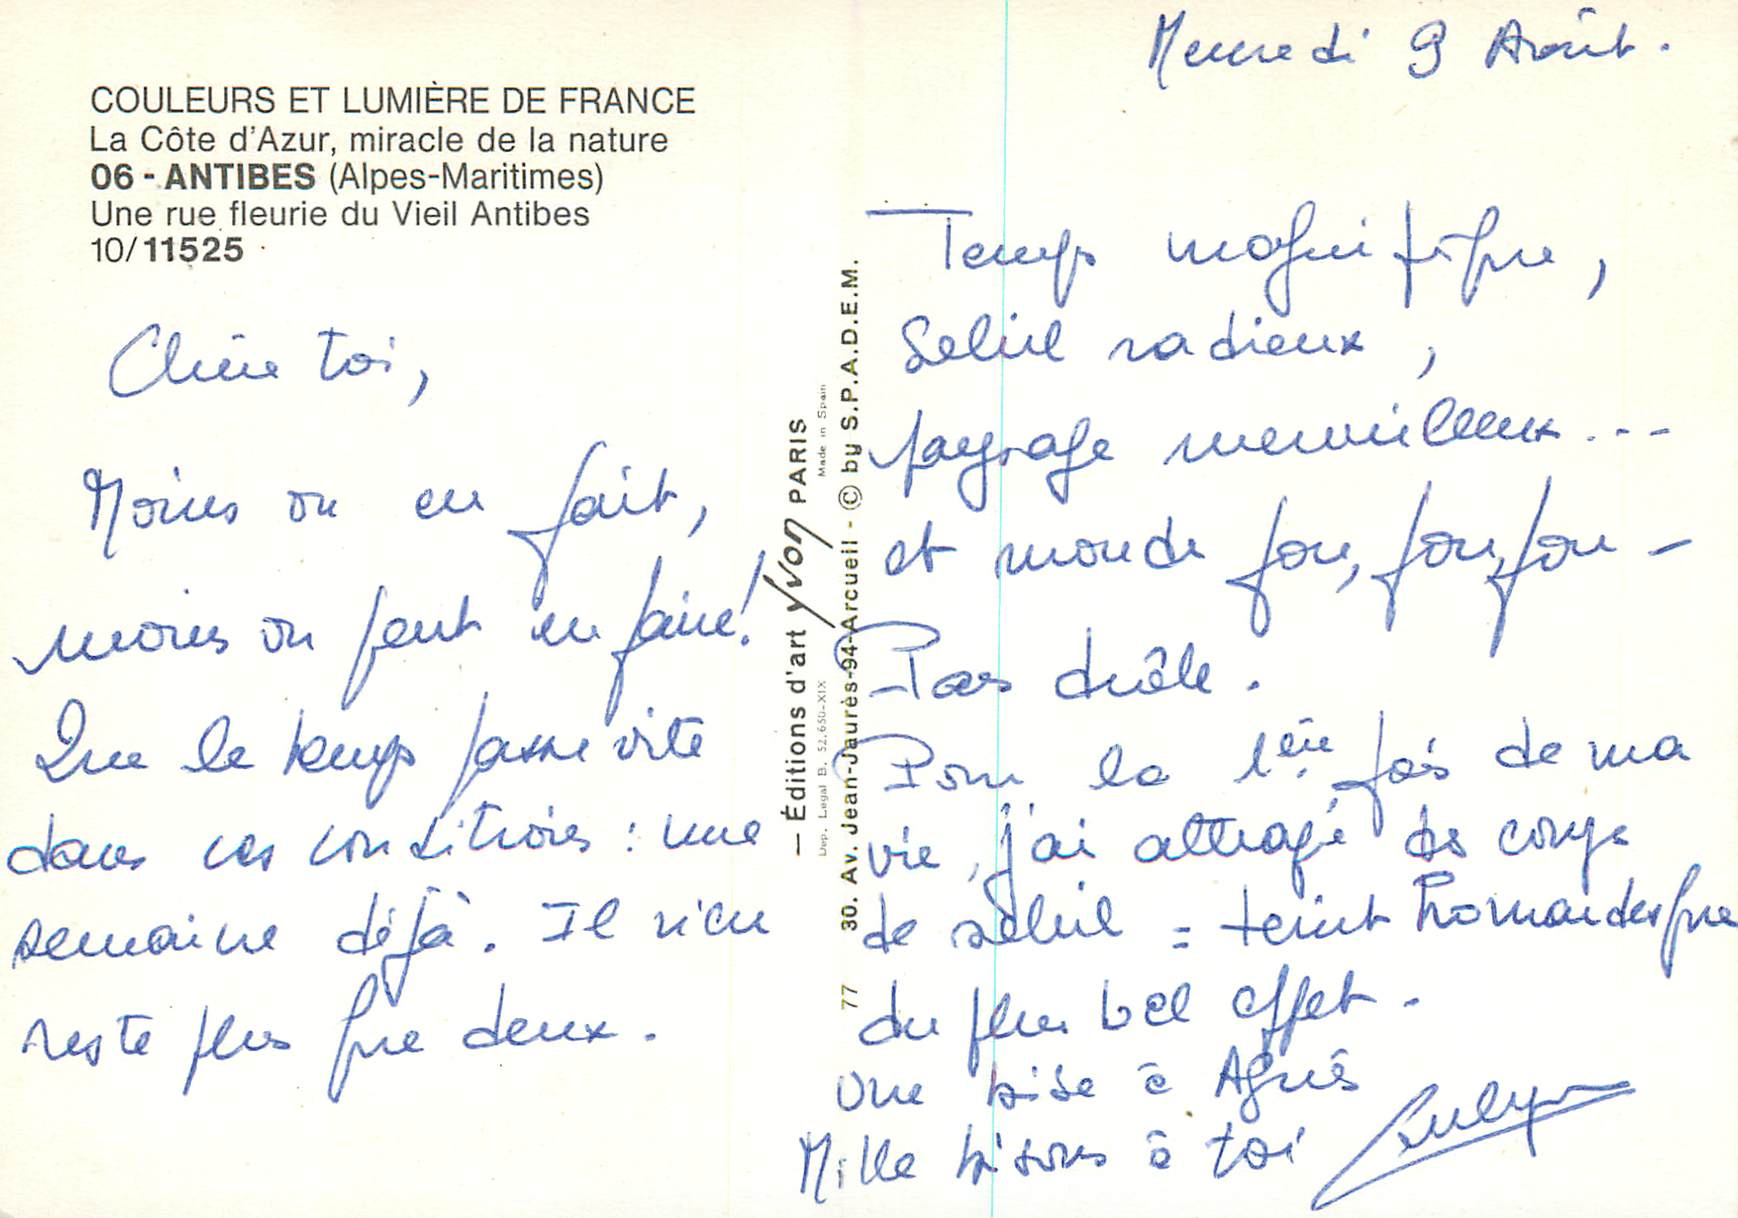 COULEURS ET LUMIÈRE DE FRANCE
La Côte d'Azur, miracle de la nature
06 - ANTIBES (Alpes-Maritimes)
Une rue fleurie du Vieil Antibes
10/11525
Chère toi,
Moins on en fait,
moins on peut en faire!
Que le temps passe vite
dans ces conditions : une
semaine déjà. Il n'en
reste plus que deux.
— Éditions d'art yvon PARIS
Made in Spain
Dep. Legal B. 52.650-XIX
30. Av. Jean-Jaurès-94-Arcueil - © by S.P.A.D.E.M.
77
Mercredi 9 Août.
Temps magnifique,
Soleil radieux,
paysage merveilleux...
et monde fou, fou, fou -
Pas drôle.
Pour la 1ère fois de ma
vie, j'ai attrapé des coups
de soleil = teint
du plus bel effet.
Une bise à Agnès
Mille bisous à toi